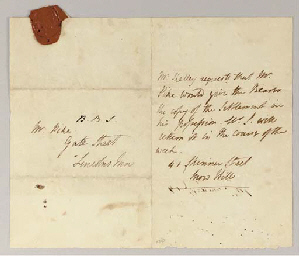 B B S
Mr. Pike
Gate Street
Lincolns Inn
Mr Kelley requests that Mr.
Pike would give the Bearer
the copy of the Settlement in
his possession Mr. S. will
return it in the course of the
week
41 Skinner Street
Snow Hill